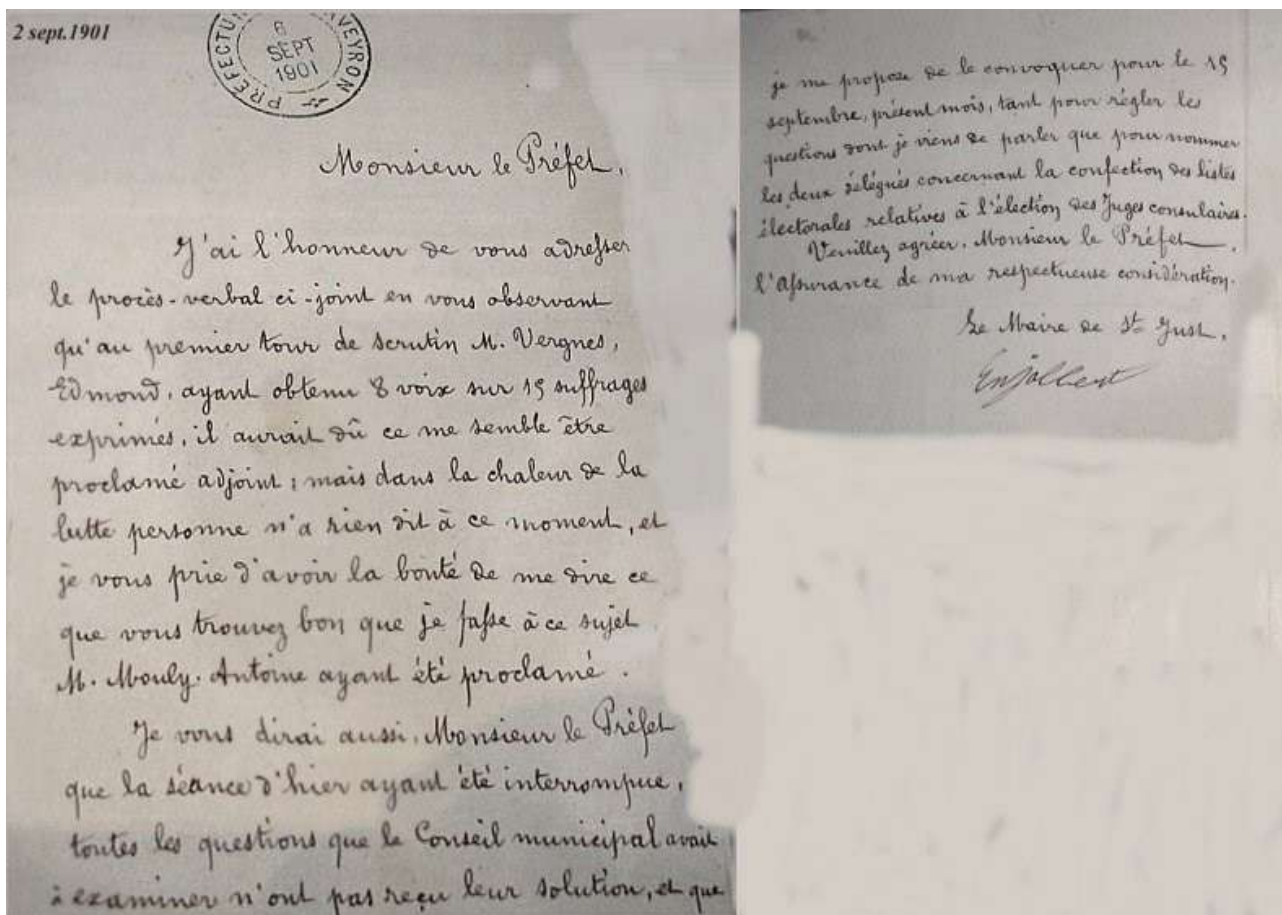 2 sept.1901
PREFECTURE AVEYRON
6
SEPT
1901
Monsieur le Préfet,
J'ai l'honneur de vous adresser
le procès-verbal ci-joint en vous observant
qu'au premier tour de scrutin M. Vergnes,
Edmond, ayant obtenu 8 voix sur 15 suffrages
exprimés, il aurait dû ce me semble être
proclamé adjoint; mais dans la chaleur de la
lutte personne n'a rien dit à ce moment, et
je vous prie d'avoir la bonté de me dire ce
que vous trouvez bon que je fasse à ce sujet
M. Mouly. Antoine ayant été proclamé.
Je vous dirai aussi, Monsieur le Préfet
que la séance d'hier ayant été interrompue,
toutes les questions que le Conseil municipal avait
à examiner n'ont pas reçu leur solution, et que
je me propose de le convoquer pour le 15
septembre, présent mois, tant pour régler les
questions dont je viens de parler que pour nommer
les deux délégués concernant la confection des listes
électorales relatives à l'élection des Juges consulaires.
Veuillez agréer, Monsieur le Préfet,
l'assurance de ma respectueuse considération.
Le Maire de St Just,
Enjalbert